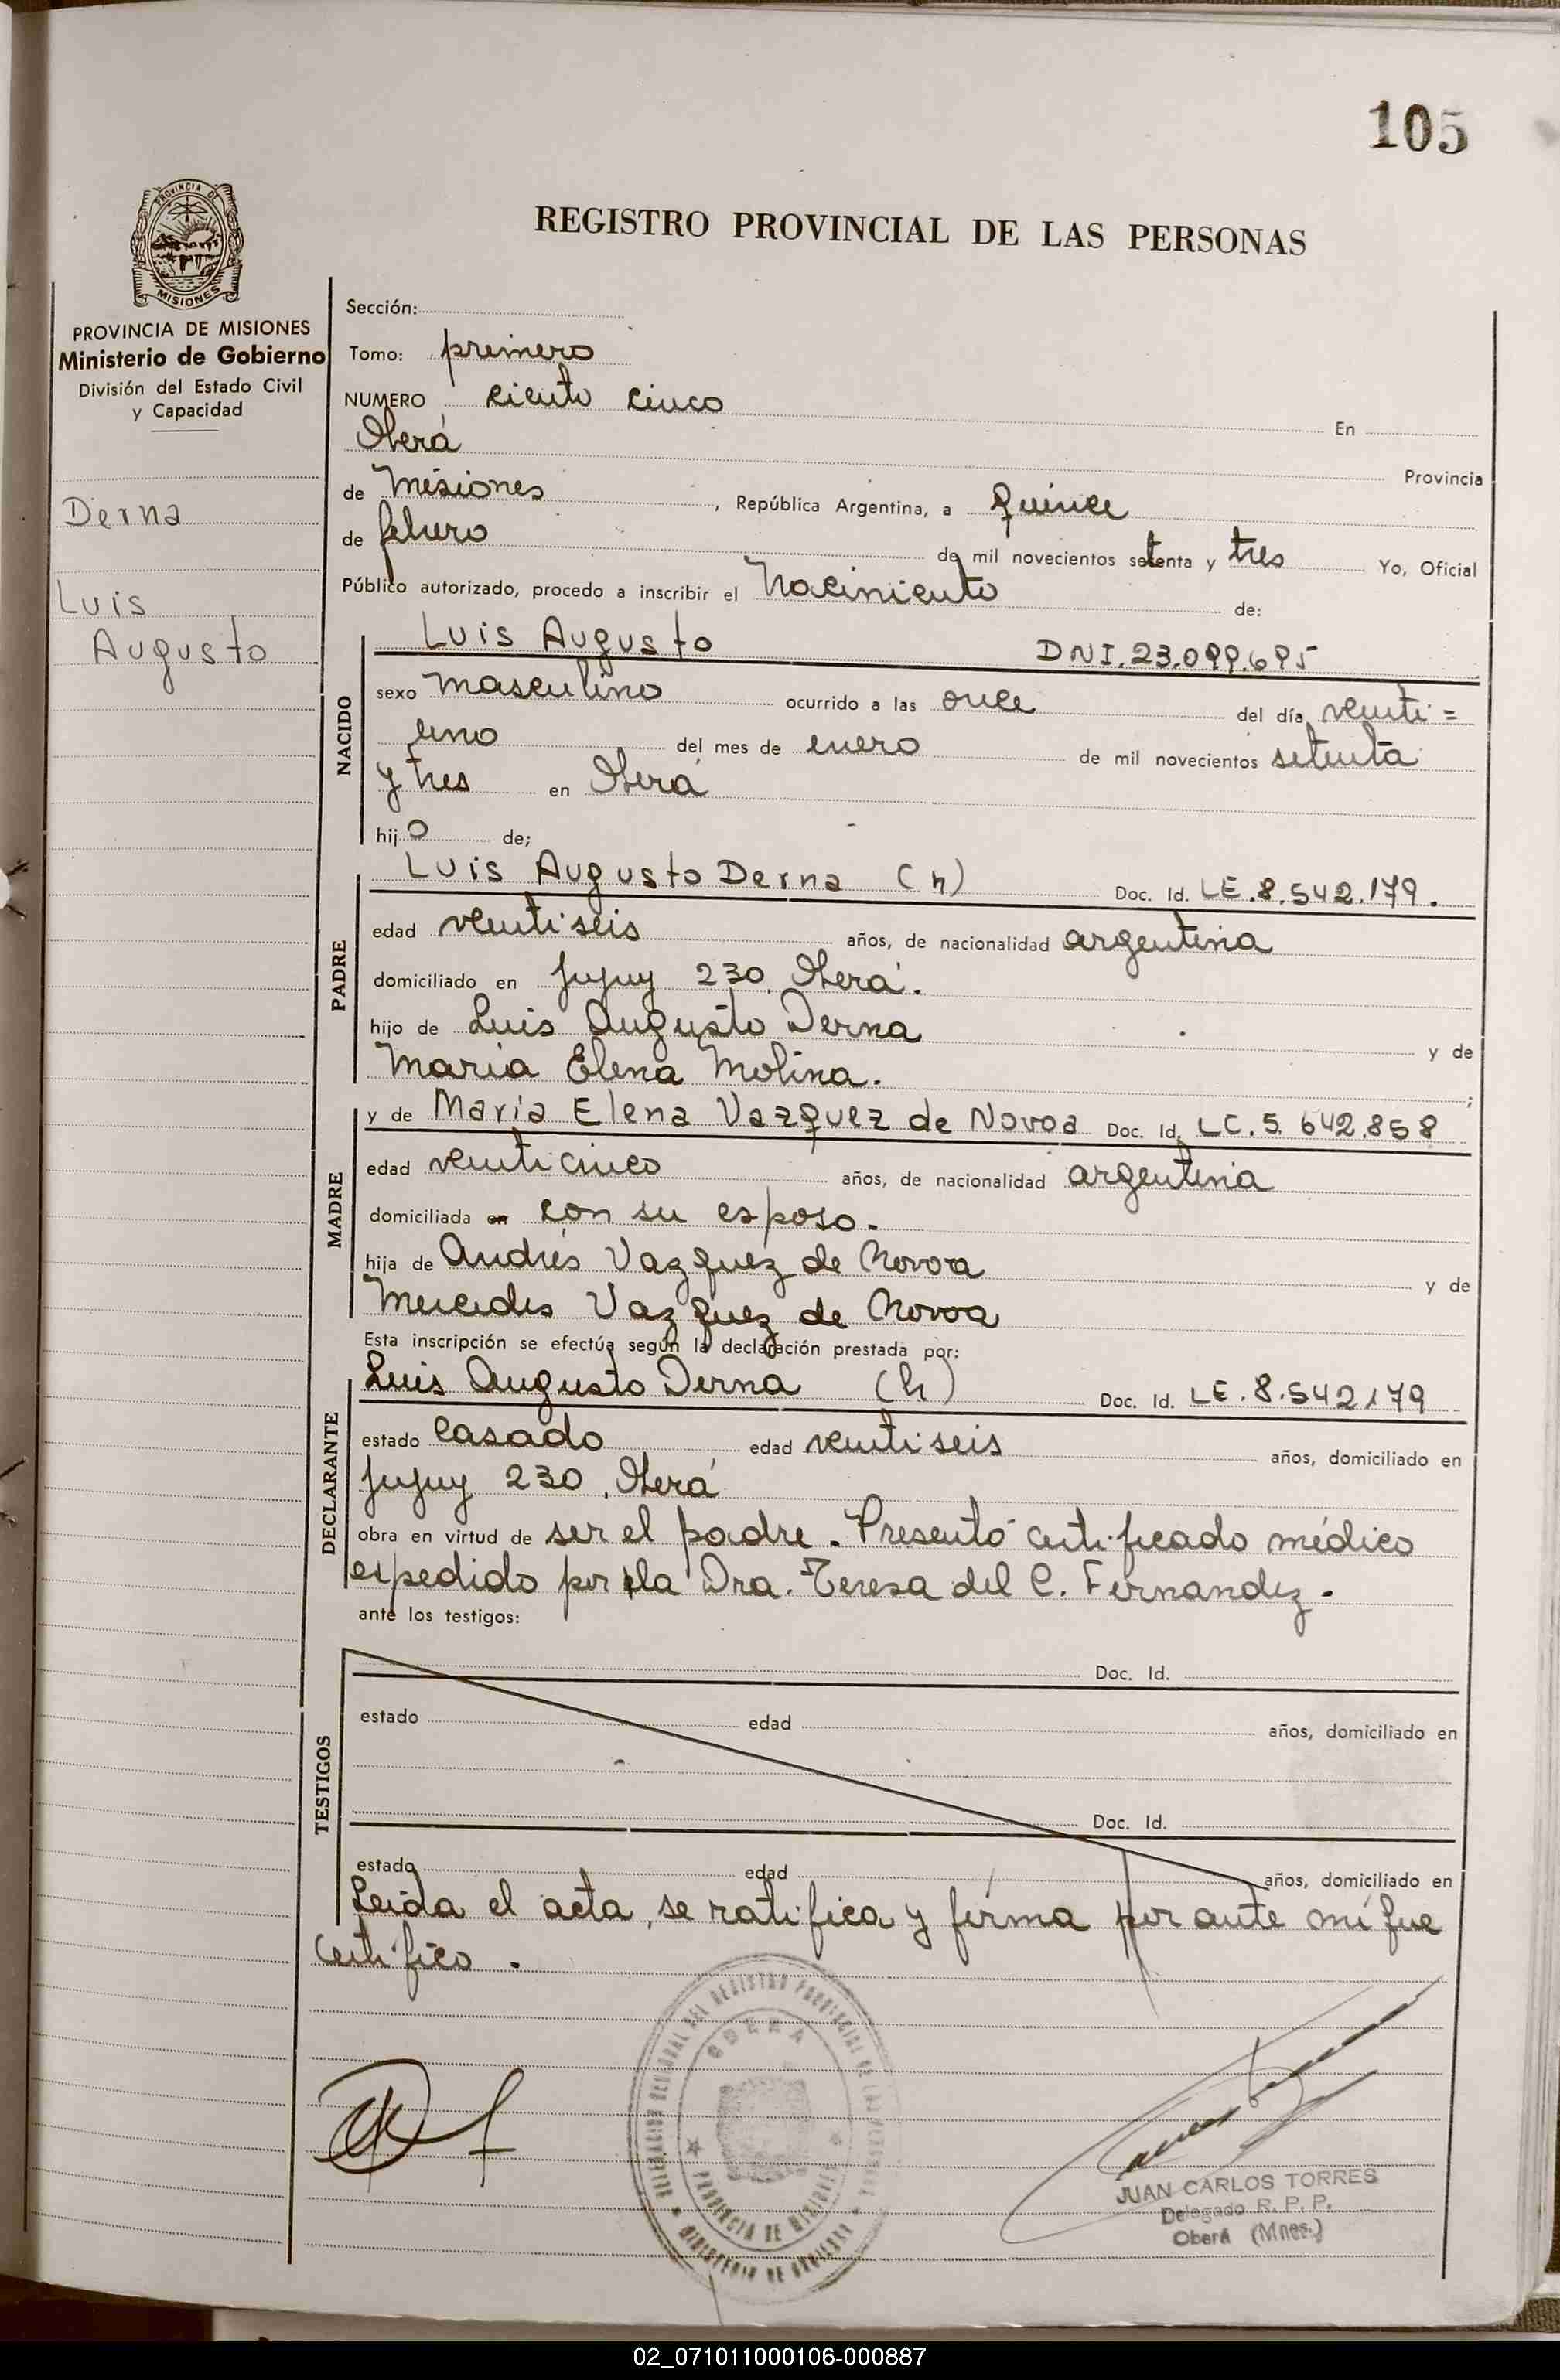 105
PROVINCIA DE
MISIONES
REGISTRO PROVINCIAL DE LAS PERSONAS
PROVINCIA DE MISIONES
Ministerio de Gobierno
División del Estado Civil
y Capacidad
Derna
Luis
Augusto
Sección:
Tomo: primero
NUMERO ciento cinco En
Oberá Provincia
de Misiones, República Argentina, a quince
de febrero de mil novecientos setenta y tres Yo, Oficial
Público autorizado, procedo a inscribir el Nacimiento de:
NACIDO
Luis Augusto DNI.23.099.695
sexo masculino ocurrido a las once del día veinti=
uno del mes de enero de mil novecientos setenta
y tres en Oberá
hijo de;
PADRE
Luis Augusto Derna (h) Doc. Id. LE.8.542.179.
edad veintiseis años, de nacionalidad argentina
domiciliado en Jujuy 230, Oberá.
hijo de Luis Augusto Derna y de
María Elena Molina. ;
MADRE
y de María Elena Vazquez de Novoa Doc. Id. LC.5.642.858
edad veinticinco años, de nacionalidad argentina
domiciliada en con su esposo.
hija de Andrés Vazquez de Novoa y de
Mercedes Vazquez de Novoa
Esta inscripción se efectúa según la declaración prestada por:
DECLARANTE
Luis Augusto Derna (h) Doc. Id. LE.8.542179
estado casado edad veintiseis años, domiciliado en
Jujuy 230, Oberá
obra en virtud de ser el padre. Presentó certificado médico
expedido por la Dra. Teresa del C. Fernandez.
ante los testigos:
TESTIGOS
Doc. Id.
estado edad años, domiciliado en
Doc. Id.
estado edad años, domiciliado en
Leída el acta, se ratifica y firma por ante mí que
certifico.
OBERA
PROVINCIA DE MISIONES
MINISTERIO DE GOBIERNO
JUAN CARLOS TORRES
Delegado R. P. P.
Oberá (Mnes.)
02_071011000106-000887